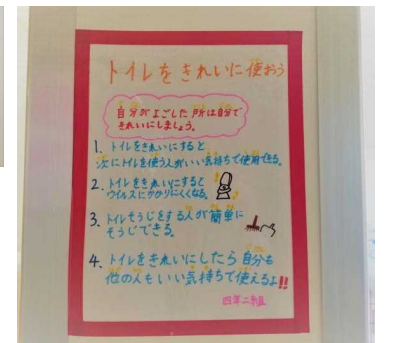 トイレをきれいに使おう
自分がよごした所は自分で
きれいにしましょう。
1. トイレをきれいにすると
次にトイレを使う人がいい気持ちで使用できる。
2. トイレをきれいにすると
ウイルスにかかりにくくなる。
3. トイレそうじをする人が簡単に
そうじできる。
4. トイレをきれいにしたら自分も
他の人もいい気持ちで使えるよ!!
四年二組